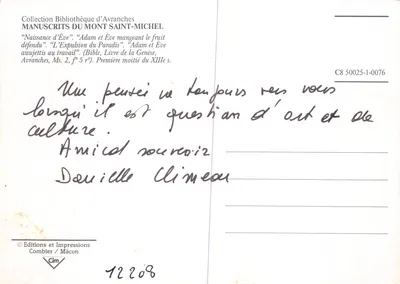 Collection Bibliothèque d'Avranches
MANUSCRITS DU MONT SAINT-MICHEL
"Naissance d'Ève". "Adam et Ève mangeant le fruit
défendu". "L'Expulsion du Paradis". "Adam et Ève
assujettis au travail". (Bible, Livre de la Genèse,
Avranches, Ms. 2, f° 5 r°). Première moitié du XIIIe s.
C8 50025-1-0076
Une pensée va toujours vers vous
lorsqu'il est question d'art et de
culture.
Amical souvenir
Danielle
© Editions et Impressions
Combier / Mâcon
Cim
12208